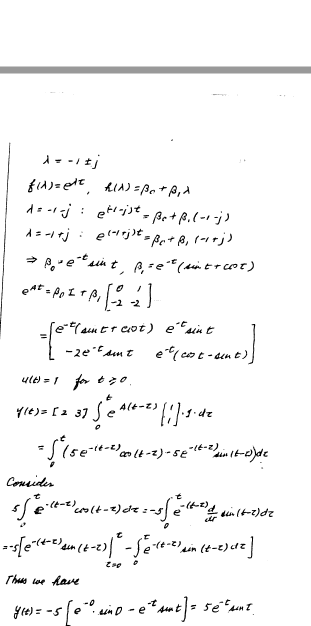 λ = -1 ± j
f(λ) = e^{λt}, h(λ) = β₀ + β₁λ
λ = -1 - j : e^{(-1-j)t} = β₀ + β₁(-1-j)
λ = -1 + j : e^{(-1+j)t} = β₀ + β₁(-1+j)
⇒ β₀ = e^{-t} sin t, β₁ = e^{-t}(sin t + cos t)
e^{At} = β₀ I + β₁ [0 1; -2 -2]
= [e^{-t}(sin t + cos t) e^{-t} sin t; -2e^{-t} sin t e^{-t}(cos t - sin t)]
u(t) = 1 for t ≥ 0.
y(t) = [2 3] ∫₀^t e^{A(t-τ)} [1; 1]·1·dτ
= ∫₀^t (5e^{-(t-τ)} cos(t-τ) - 5e^{-(t-τ)} sin(t-τ)) dτ
Consider
5∫₀^t e^{-(t-τ)} cos(t-τ) dτ = -5∫₀^t e^{-(t-τ)} d/dτ sin(t-τ) dτ
= -5[e^{-(t-τ)} sin(t-τ) |_{τ=0}^t - ∫₀^t e^{-(t-τ)} sin(t-τ) dτ]
Thus we have
y(t) = -5[e^{-0}·sin 0 - e^{-t} sin t] = 5e^{-t} sin t